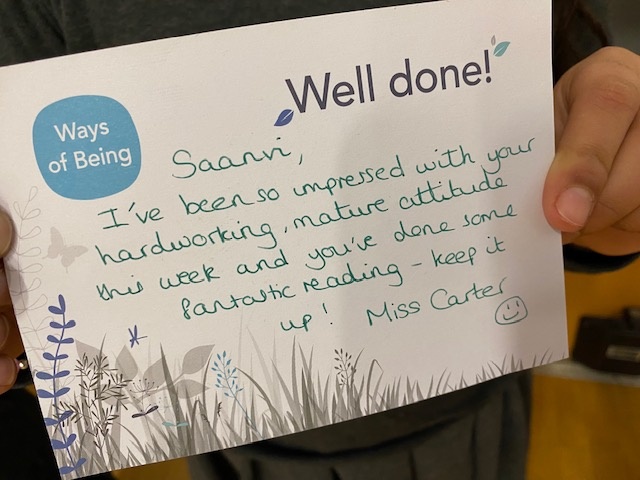 Well done!
Ways
of Being
Saanvi,
I've been so impressed with your
hardworking, mature attitude
this week and you've done some
fantastic reading - keep it
up! Miss Carter